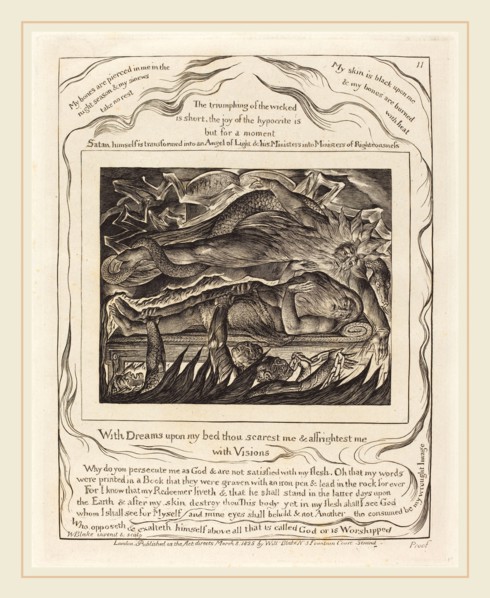 11
My bones are pierced in me in the
night season & my sinews
take no rest
My skin is black upon me
& my bones are burned
with heat
The triumphing of the wicked
is short, the joy of the hypocrite is
but for a moment
Satan himself is transformed into an Angel of Light & his Ministers into Ministers of Righteousness
With Dreams upon my bed thou scarest me & affrightest me
with Visions
Why do you persecute me as God & are not satisfied with my flesh. Oh that my words
were printed in a Book that they were graven with an iron pen & lead in the rock for ever
For I know that my Redeemer liveth & that he shall stand in the latter days upon
the Earth & after my skin destroy thou This body yet in my flesh shall I see God
whom I shall see for Myself and mine eyes shall behold & not Another tho consumed be my wrought Image
Who opposeth & exalteth himself above all that is called God or is Worshipped
WBlake invent & sculp
London. Published as the Act directs March 8: 1825 by Will Blake N 3 Fountain Court Strand
Proof